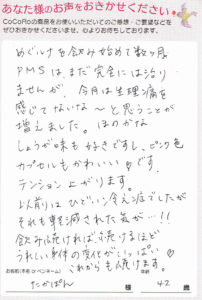 あなた様のお声をおきかせください
CoCoRoの商品をお使いいただいてのご感想・ご要望などを
ぜひおきかせくださいませ。心よりお待ちしております。
めぐルナを飲み始めて数ヶ月
PMSは、まだ完全には治り
ませんが、今月は生理痛を
感じてないな〜と思うことが
増えました。ほのかな
しょうが味も好きですし、ピンク色
カプセルもかわいい♡です。
テンション上がります。
以前はひどい冷え症でしたが
それも軽減された気が…!!
飲み続ければ続けるほど
うれしい身体の変化がいっぱい♡
これからも続けます。
お名前(本名 or ペンネーム) 年齢
たかぽん 様 42 歳